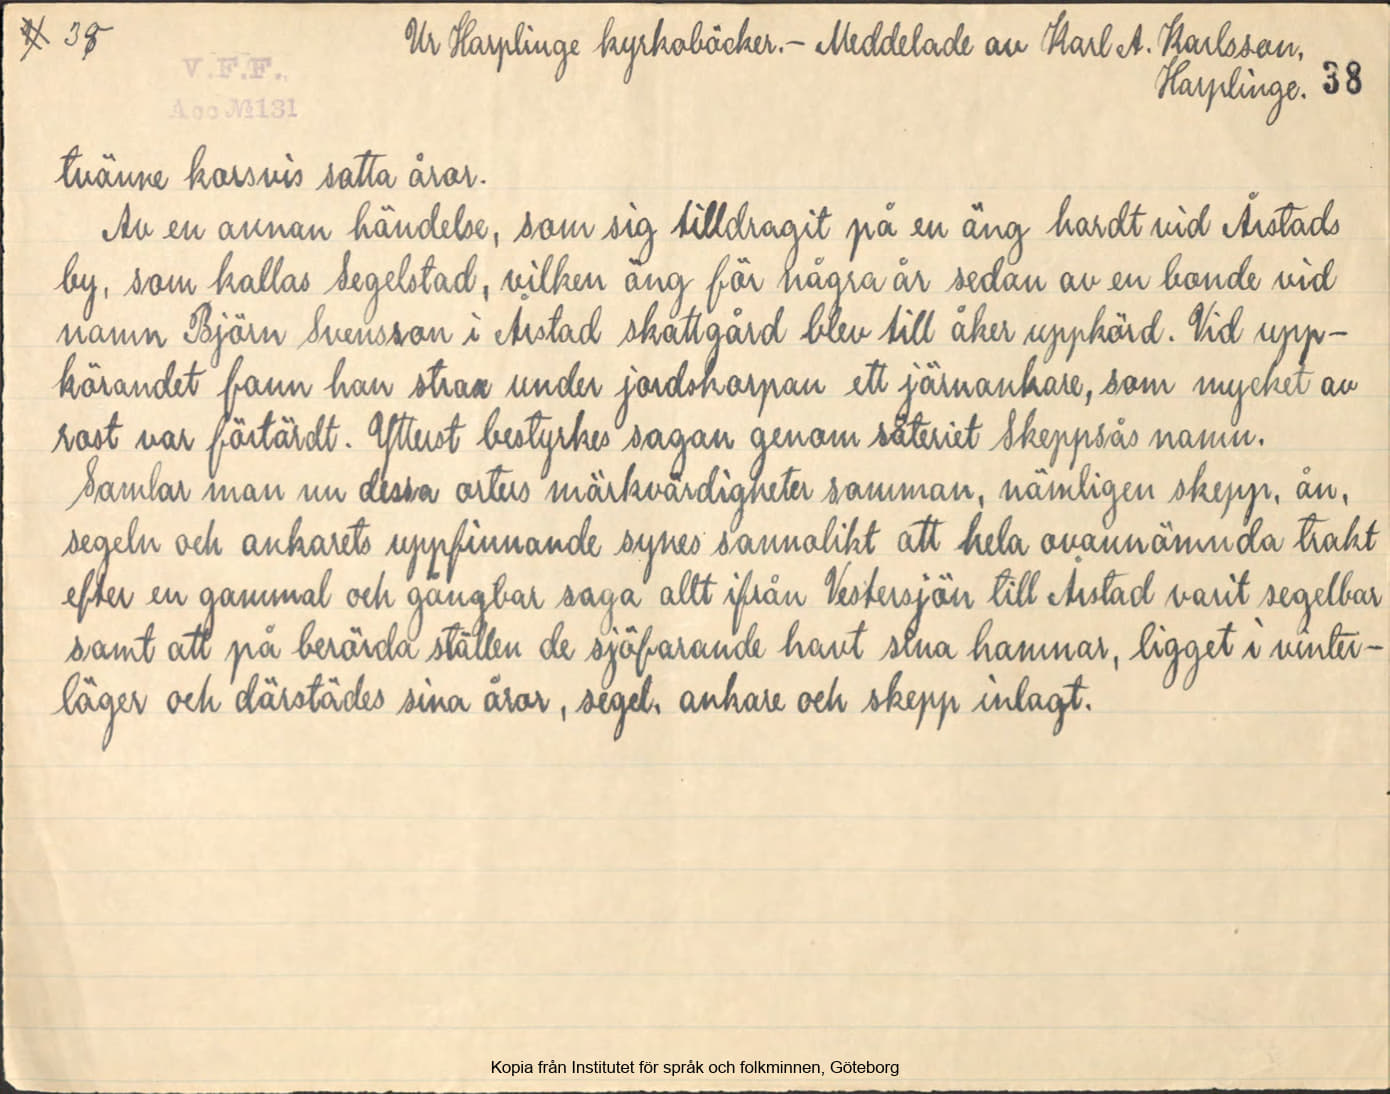 38
Ur Harplinge kyrkoböcker.- Meddelade av Karl A. Karlsson,
Harplinge. 38
V.F.F.
Acc № 131
tvänne korsvis satta åror.
Av en annan händelse, som sig tilldragit på en äng hardt vid Årstads
by, som kallas Segelstad, vilken äng för några år sedan av en bonde vid
namn Björn Svensson i Årstad skattgård blev till åker uppkörd. Vid upp-
körandet fann han strax under jordskorpan ett järnankare, som mycket av
rost var förtärdt. Ytterst bestyrkes sagan genom säteriet Skeppsås namn.
Samlar man nu dessa orters märkvärdigheter samman, nämligen skepp, ån,
segeln och ankarets uppfinnande synes sannolikt att hela ovannämnda trakt
efter en gammal och gångbar saga allt ifrån Vestersjön till Årstad varit segelbar
samt att på berörda ställen de sjöfarande havt sina hamnar, ligget i vinter-
läger och därstädes sina åror, segel, ankare och skepp inlagt.
Kopia från Institutet för språk och folkminnen, Göteborg